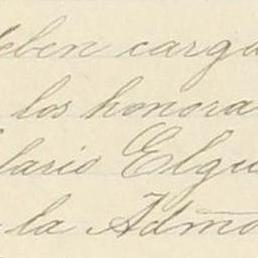 deben carga
los honora
lario Elgu
la Admo